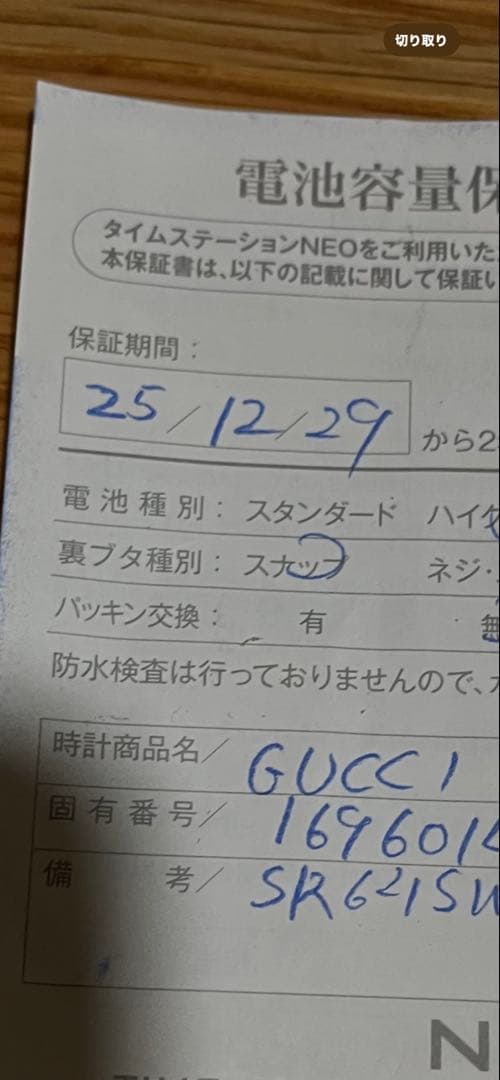 切り取り
電池容量保
タイムステーションNEOをご利用いた
本保証書は、以下の記載に関して保証い
保証期間：
25/12/29 から2
電池種別： スタンダード ハイ
裏ブタ種別： スナップ ネジ・
パッキン交換： 有 無
防水検査は行っておりませんので、
時計商品名／ GUCCI
固有番号／ 1696014
備考／ SR621SW
N